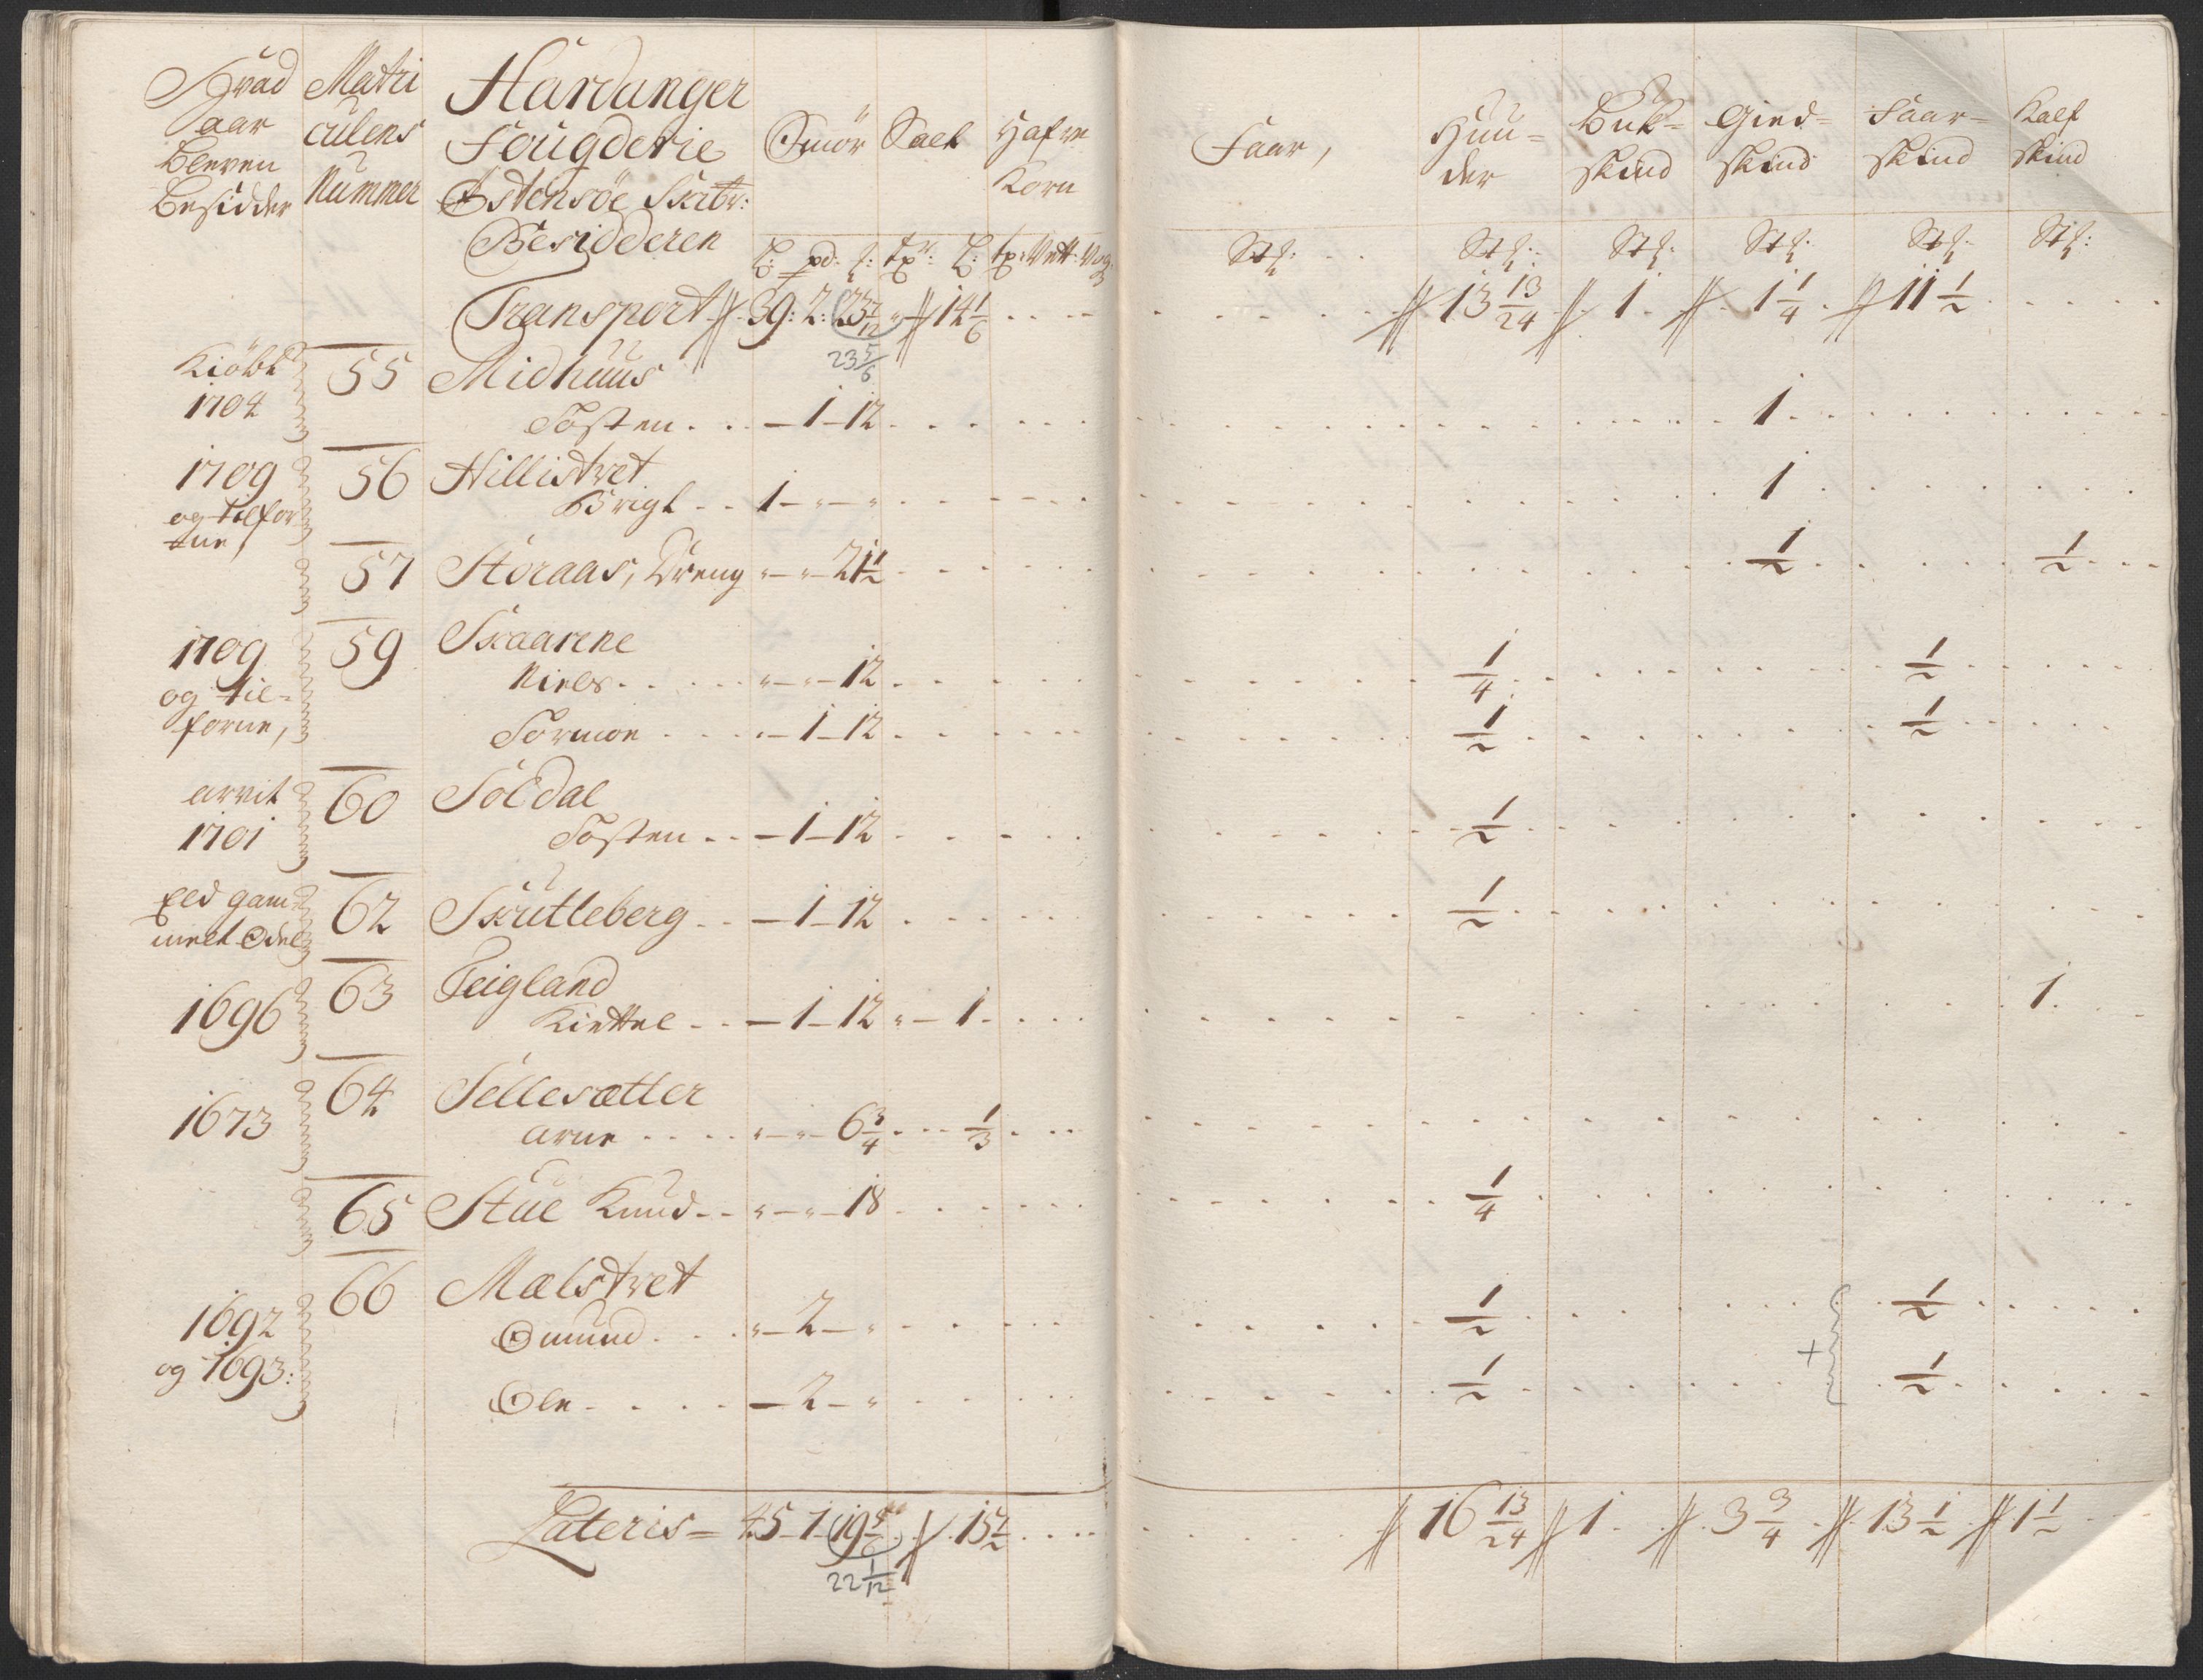 Hvad Aar Bleven Besidder | Matriculens Nummer | Hardanger Fougderie Østensöe Skibr: Besidderen | Smör | Salt | Hafre Korn | Faar, | Huuder | Bukskind | Giedskind | Faarskind | Kalfskind
pd: | Vett: | Stk: | Stk: | Stk: | Stk: | Stk: | Stk:
Transport // 39: 2: 23 7/12 // 14 1/6 // 13 13/24 // 1 // 1 1/4 // 11 1/2
23 5/6
Kiöbt 1704 | 55 Midhuus
Tosten - 1 - 12 | 1
1709 og tilforne, | 56 Hillistvet
Brigt 1 - " - " | 1
57 Storaas, Dreng " - " - 21 1/2 | 1/2 | 1/2
1709 og tilforne, | 59 Skaarene
Niels " - " - 12 | 1/4 | 1/2
Tormoe - 1 - 12 | 1/2 | 1/2
arvet 1701 | 60 Soldal
Tosten - 1 - 12 | 1/2
Eld gammelt Odel | 62 Skutleberg - 1 - 12 | 1/2
1696 | 63 Teigland
Kiettel - 1 - 12 " - 1 | 1
1673 | 64 Sellesætter
Arne " - " - 6 3/4 | 1/3
65 Stue Knud " - " - 18 | 1/4
1692 og 1693: | 66 Mælstvet
Omund " - 2 - " | 1/2 | 1/2
+
Ole - 2 - " | 1/2 | 1/2
Lateris = 45 - 1 - 19 5/6 // 15 1/2 // 16 13/24 // 1 // 3 3/4 // 13 1/2 // 1 1/2
22 1/12